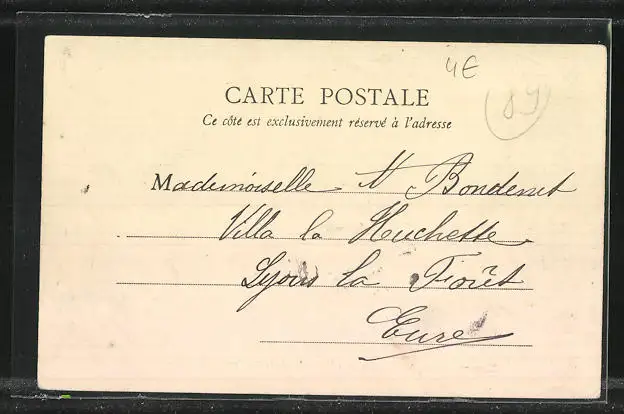 4E
89
CARTE POSTALE
Ce côté est exclusivement réservé à l'adresse
Mademoiselle N Bondenet
Villa la Huchette
Lyons la Forêt
Eure